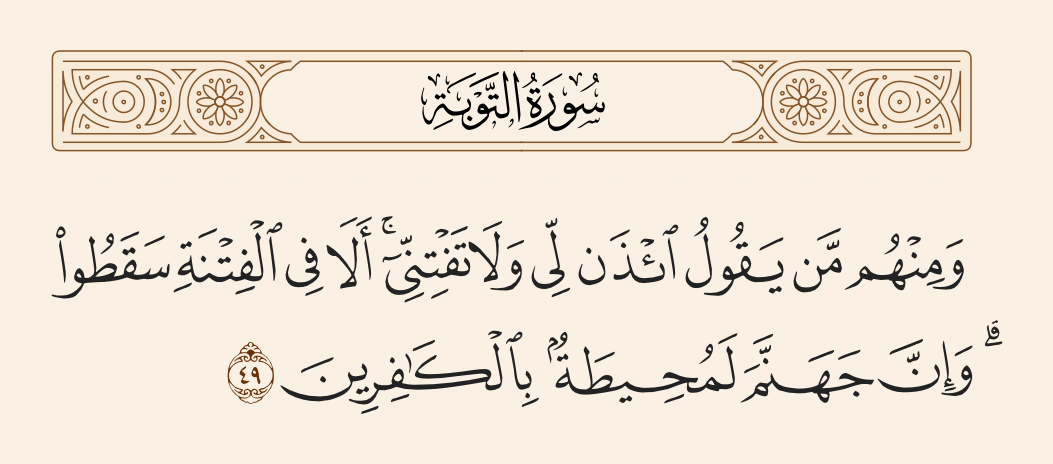 سُورَةُ التَّوْبَةِ
وَمِنْهُم مَّن يَقُولُ ٱئْذَن لِّى وَلَا تَفْتِنِّىٓ ۚ أَلَا فِى ٱلْفِتْنَةِ سَقَطُوا۟
ۗ وَإِنَّ جَهَنَّمَ لَمُحِيطَةٌۢ بِٱلْكَـٰفِرِينَ ٤٩